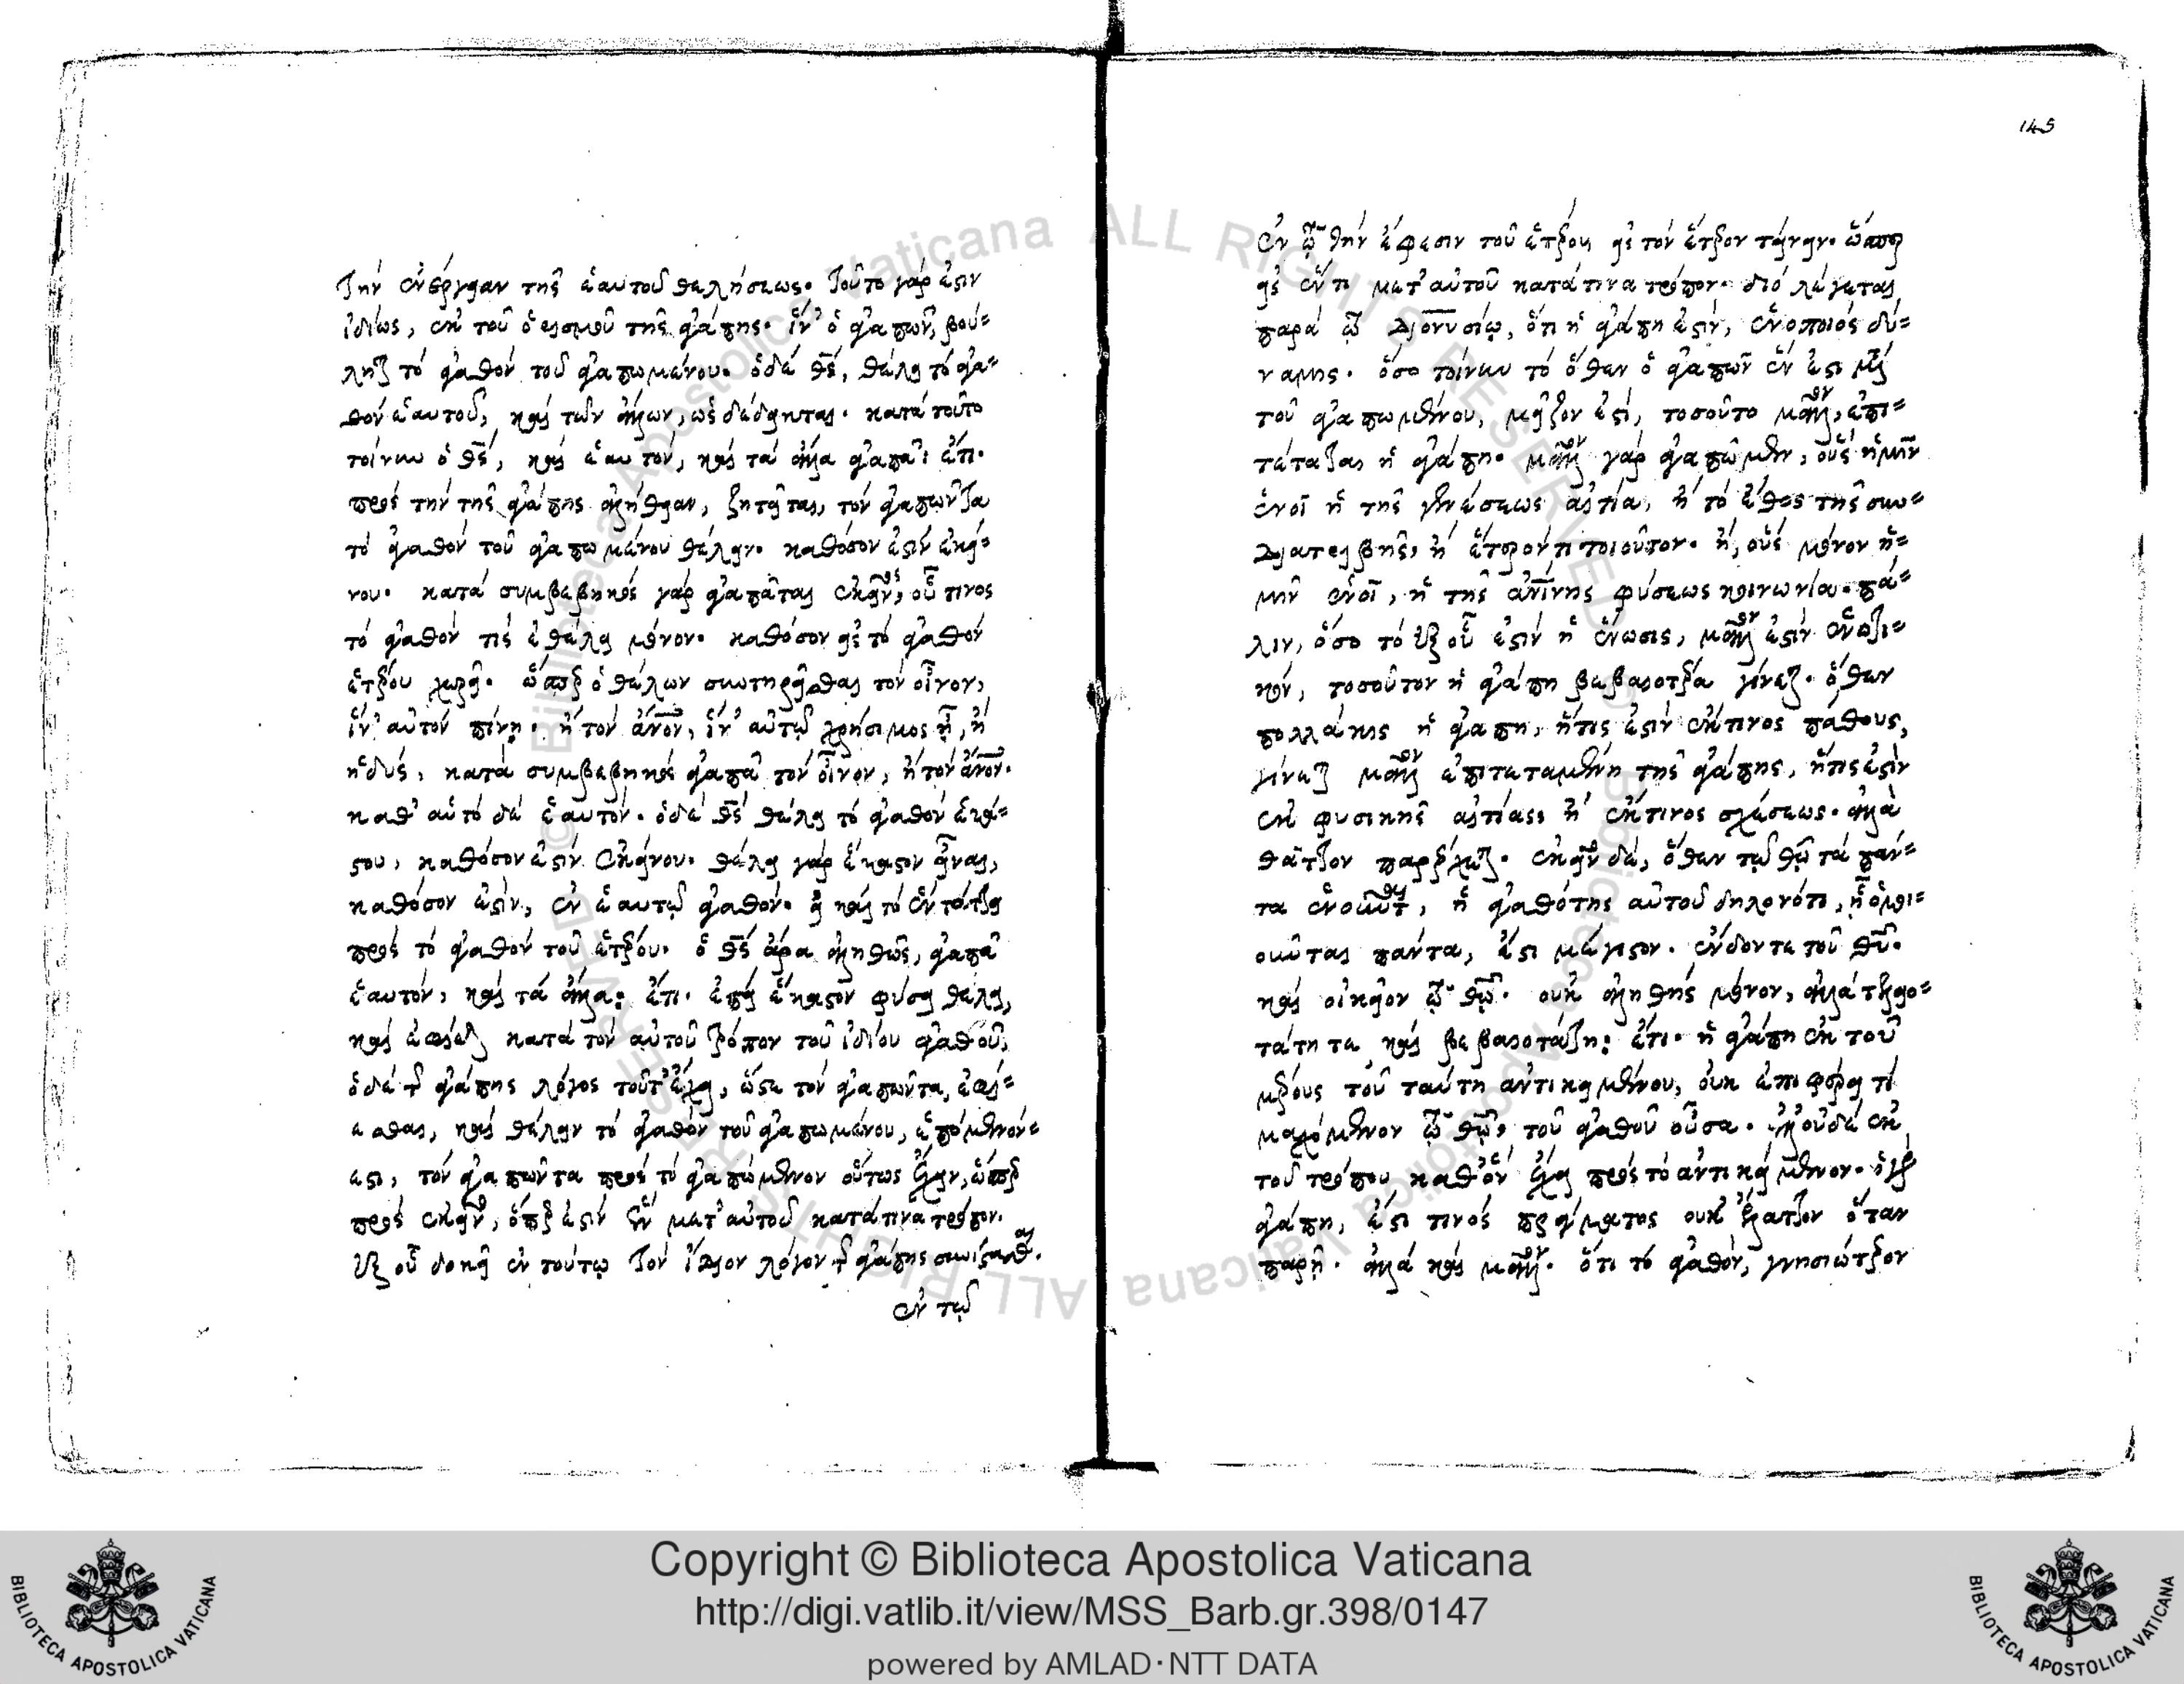 τὴν ἐνέργειαν τῆς ἑαυτοῦ θελήσεως. τοῦτο γάρ ἐστιν
ἰδίως, ἐκ τοῦ ὁρισμοῦ τῆς ἀγάπης. ἵν' ὁ ἀγαπῶν, βού=
ληται τὸ ἀγαθὸν τοῦ ἀγαπωμένου. ὁ δὲ θς̄, θέλει τὸ ἀγα=
θὸν ἑαυτοῦ, καὶ τῶν ἄλλων, ὡς δέδεικται. κατὰ τοῦτο
τοίνυν ὁ θς̄, καὶ ἑαυτὸν, καὶ τὰ ἄλλα ἀγαπᾶ: ἔτι.
πρὸς τὴν τῆς ἀγάπης ἀλήθειαν, ζητεῖται, τὸν ἀγαπῶντα
τὸ ἀγαθὸν τοῦ ἀγαπωμένου θέλειν. καθόσον ἐστὶν ἐκεί=
νου. κατὰ συμβεβηκὸς γὰρ ἀγαπᾶται ἐκεῖνος, οὗ τινος
τὸ ἀγαθόν τις ἐθέλει μόνον. καθόσον εἰς τὸ ἀγαθὸν
ἑτέρου χωρεῖ. ὥσπερ ὁ θέλων συντηρεῖσθαι τὸν οἶνον,
ἵν' αὐτὸν πίνῃ. ἢ τὸν ἄνον̄, ἵν' αὐτῷ χρήσιμος ᾖ, ἢ
ἡδύς, κατὰ συμβεβηκὸς ἀγαπᾶ τὸν οἶνον, ἢ τὸν ἄνον̄.
καθ' αὑτὸ δὲ ἑαυτόν. ὁ δὲ θς̄ θέλει τὸ ἀγαθὸν ἑκά=
στου, καθόσον ἐστὶν ἐκείνου. θέλει γὰρ ἕκαστον εἶναι,
καθόσον ἐστὶν, ἐν ἑαυτῷ ἀγαθόν. εἰ καὶ τὸ ἓν τάττει
πρὸς τὸ ἀγαθὸν τοῦ ἑτέρου. ὁ θς̄ ἄρα ἀληθῶς, ἀγαπᾶ
ἑαυτὸν, καὶ τὰ ἄλλα: ἔτι. ἐπεὶ ἕκαστον φύσει θέλει,
καὶ ἐφίεται κατὰ τὸν αὐτοῦ τρόπον τοῦ ἰδίου ἀγαθοῦ,
ὁ δὲ τῆς ἀγάπης λόγος τοῦτ' ἔχει, ὥστε τὸν ἀγαπῶντα, ἐφί=
εσθαι, καὶ θέλειν τὸ ἀγαθὸν τοῦ ἀγαπωμένου, ἑπόμενόν=
ἐστι, τὸν ἀγαπῶντα πρὸς τὸ ἀγαπώμενον οὕτως ἔχειν, ὥσπερ
πρὸς ἐκεῖνο, ὅπερ ἐστὶν ἓν μετ' αὐτοῦ κατά τινα τρόπον.
ἐξ οὗ δοκεῖ ἐν τούτῳ τὸν ἴδιον λόγον τῆς ἀγάπης συνίστασθαι.
ἐν τῷ
145
ἐν τῷ τὴν ἔφεσιν τοῦ ἑτέρου εἰς τὸν ἕτερον τείνειν. ὥσπερ
εἰς ἕν τι μετ' αὐτοῦ κατά τινα τρόπον. διὸ λέγεται
παρὰ τῷ Διονυσίῳ, ὅτι ἡ ἀγάπη ἐστὶν, ἑνοποιὸς δύ=
ναμις. ὅσο τοίνυν τὸ ὅθεν ὁ ἀγαπῶν ἕν ἐστι μετὰ
τοῦ ἀγαπωμένου, μεῖζόν ἐστι, τοσοῦτο μᾶλλον, ἐπι=
τέταται ἡ ἀγάπη. μᾶλλον γὰρ ἀγαπῶμεν, οὓς ἡμῖν
ἑνοῖ ἡ τῆς γενέσεως αἰτία, ἢ τὸ ἔθος τῆς συν=
διατριβῆς, ἢ ἕτερόν τι τοιοῦτον. ἢ, οὓς μόνον ἡ=
μῖν ἑνοῖ, ἡ τῆς ἀνίνης̄ φύσεως κοινωνία. πά=
λιν, ὅσο τὸ ἐξ οὗ ἐστὶν ἡ ἕνωσις, μᾶλλόν ἐστιν ἐναπτι=
κὸν, τοσοῦτον ἡ ἀγάπη βεβαιοτέρα γίνεται. ὅθεν
πολλάκις ἡ ἀγάπη, ἥτις ἐστὶν ἔκ τινος πάθους,
γίνεται μᾶλλον ἐπιτεταμένη τῆς ἀγάπης, ἥτις ἐστὶν
ἐκ φυσικῆς αἰτίας, ἢ ἔκ τινος σχέσεως. ἀλλὰ
θᾶττον παρέρχεται. ἐκεῖνο δὲ, ὅθεν τῷ θῶ̄ τὰ πάν=
τα ἑνοῦνται, ἡ ἀγαθότης αὐτοῦ δηλονότι,
οῦνται πάντα, ἐστὶ μέγιστον. ἐνδοντε τοῦ θῦ̄.
καὶ οἰκεῖον τῷ θῶ̄. οὐκ ἀληθὴς μόνον, ἀλλὰ τελειο=
τάτη τε καὶ βεβαιοτάτη: ἔτι. ἡ ἀγάπη ἐκ τοῦ
μέρους τοῦ ταύτῃ ἀντικειμένου, οὐκ ἐπιφέρει τι
μαχόμενον τῷ θῶ̄, τοῦ ἀγαθοῦ οὖσα. ἀλλ' οὐδὲ ἐκ
τοῦ τρόπου καθ' ὃν ἔχει πρὸς τὸ ἀντικείμενον. ἡ γὰρ
ἀγάπη, ἐστί τινος πράγματος οὐκ ἔλαττον ὅταν
παρῇ. ἀλλὰ καὶ μᾶλλον. ὅτι τὸ ἀγαθὸν, γνησιώτερον